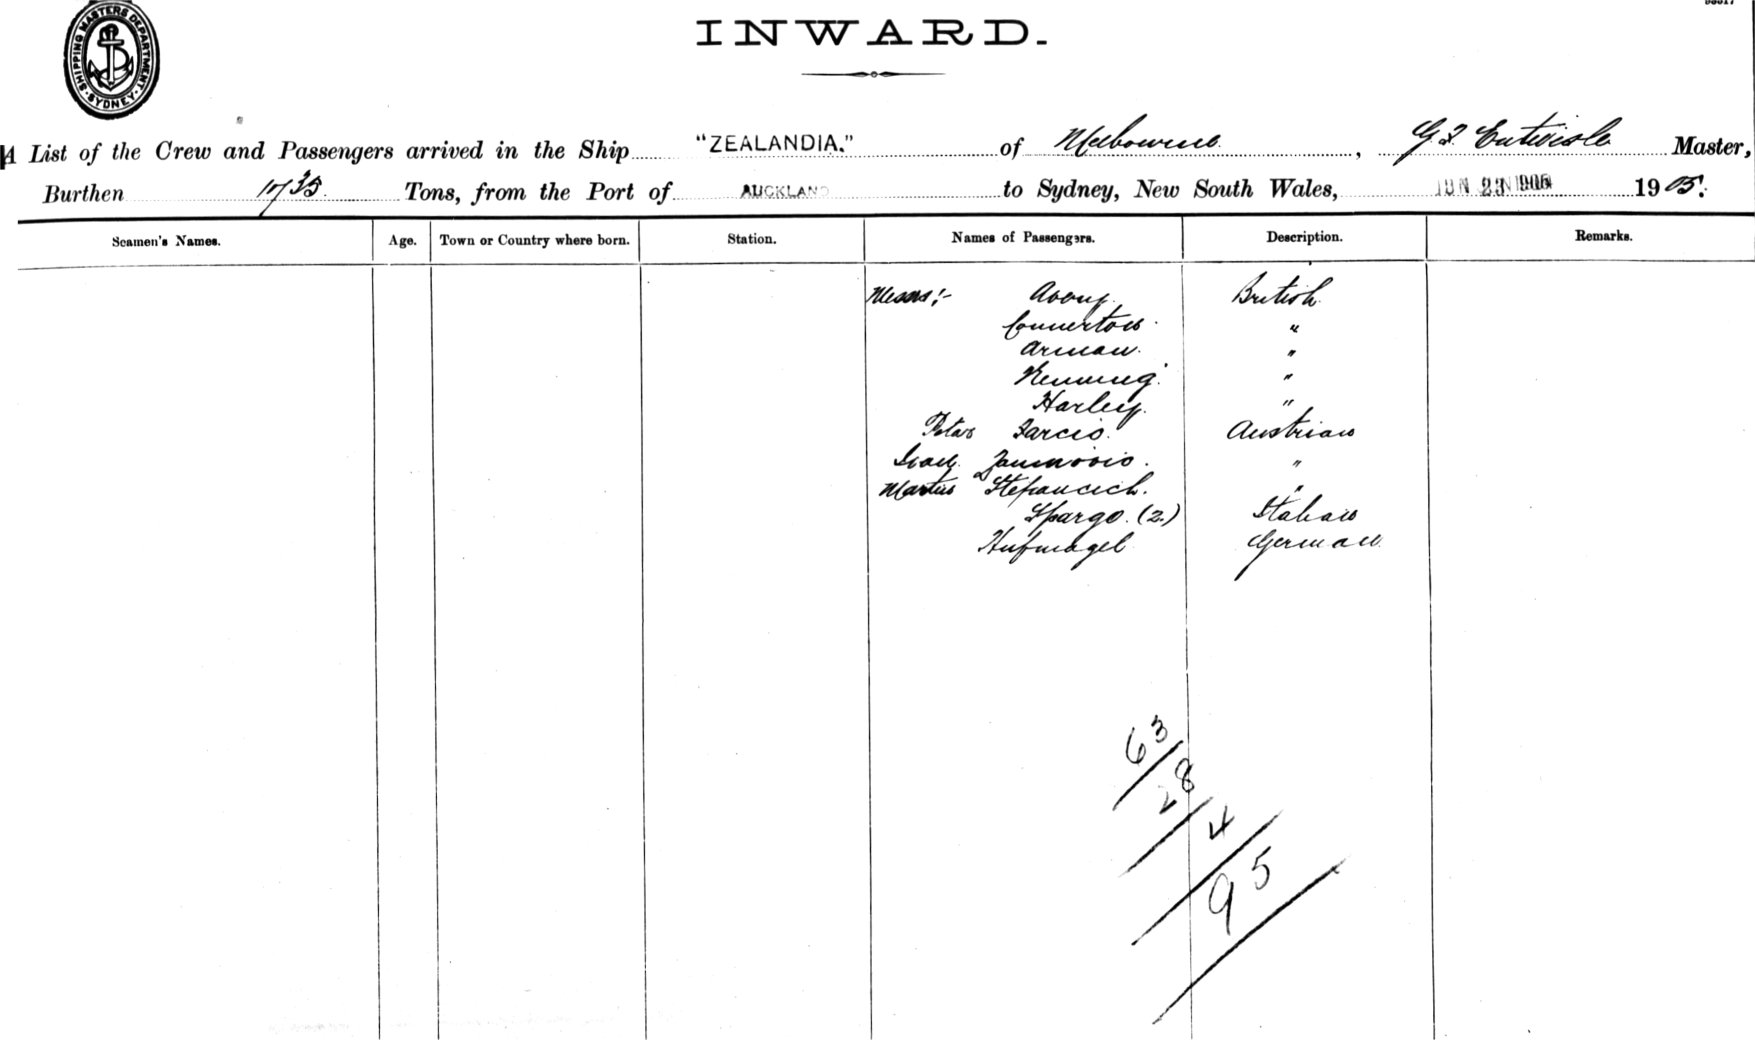 SHIPPING MASTERS DEPARTMENT. SYDNEY
INWARD.
A List of the Crew and Passengers arrived in the Ship "ZEALANDIA." of Melbourne, G. Entwisle Master,
Burthen Tons, from the Port of AUCKLAND to Sydney, New South Wales, JUN 23 1905 1905.
Seamen's Names. Age. Town or Country where born. Station. Names of Passengers. Description. Remarks.
Messrs:- Avery. British
"
Arman. "
"
Harley. "
Austrian
"
Martin Stefancich. "
Spargo. (2.) Italian
Hufnagel German
63
28
4
95